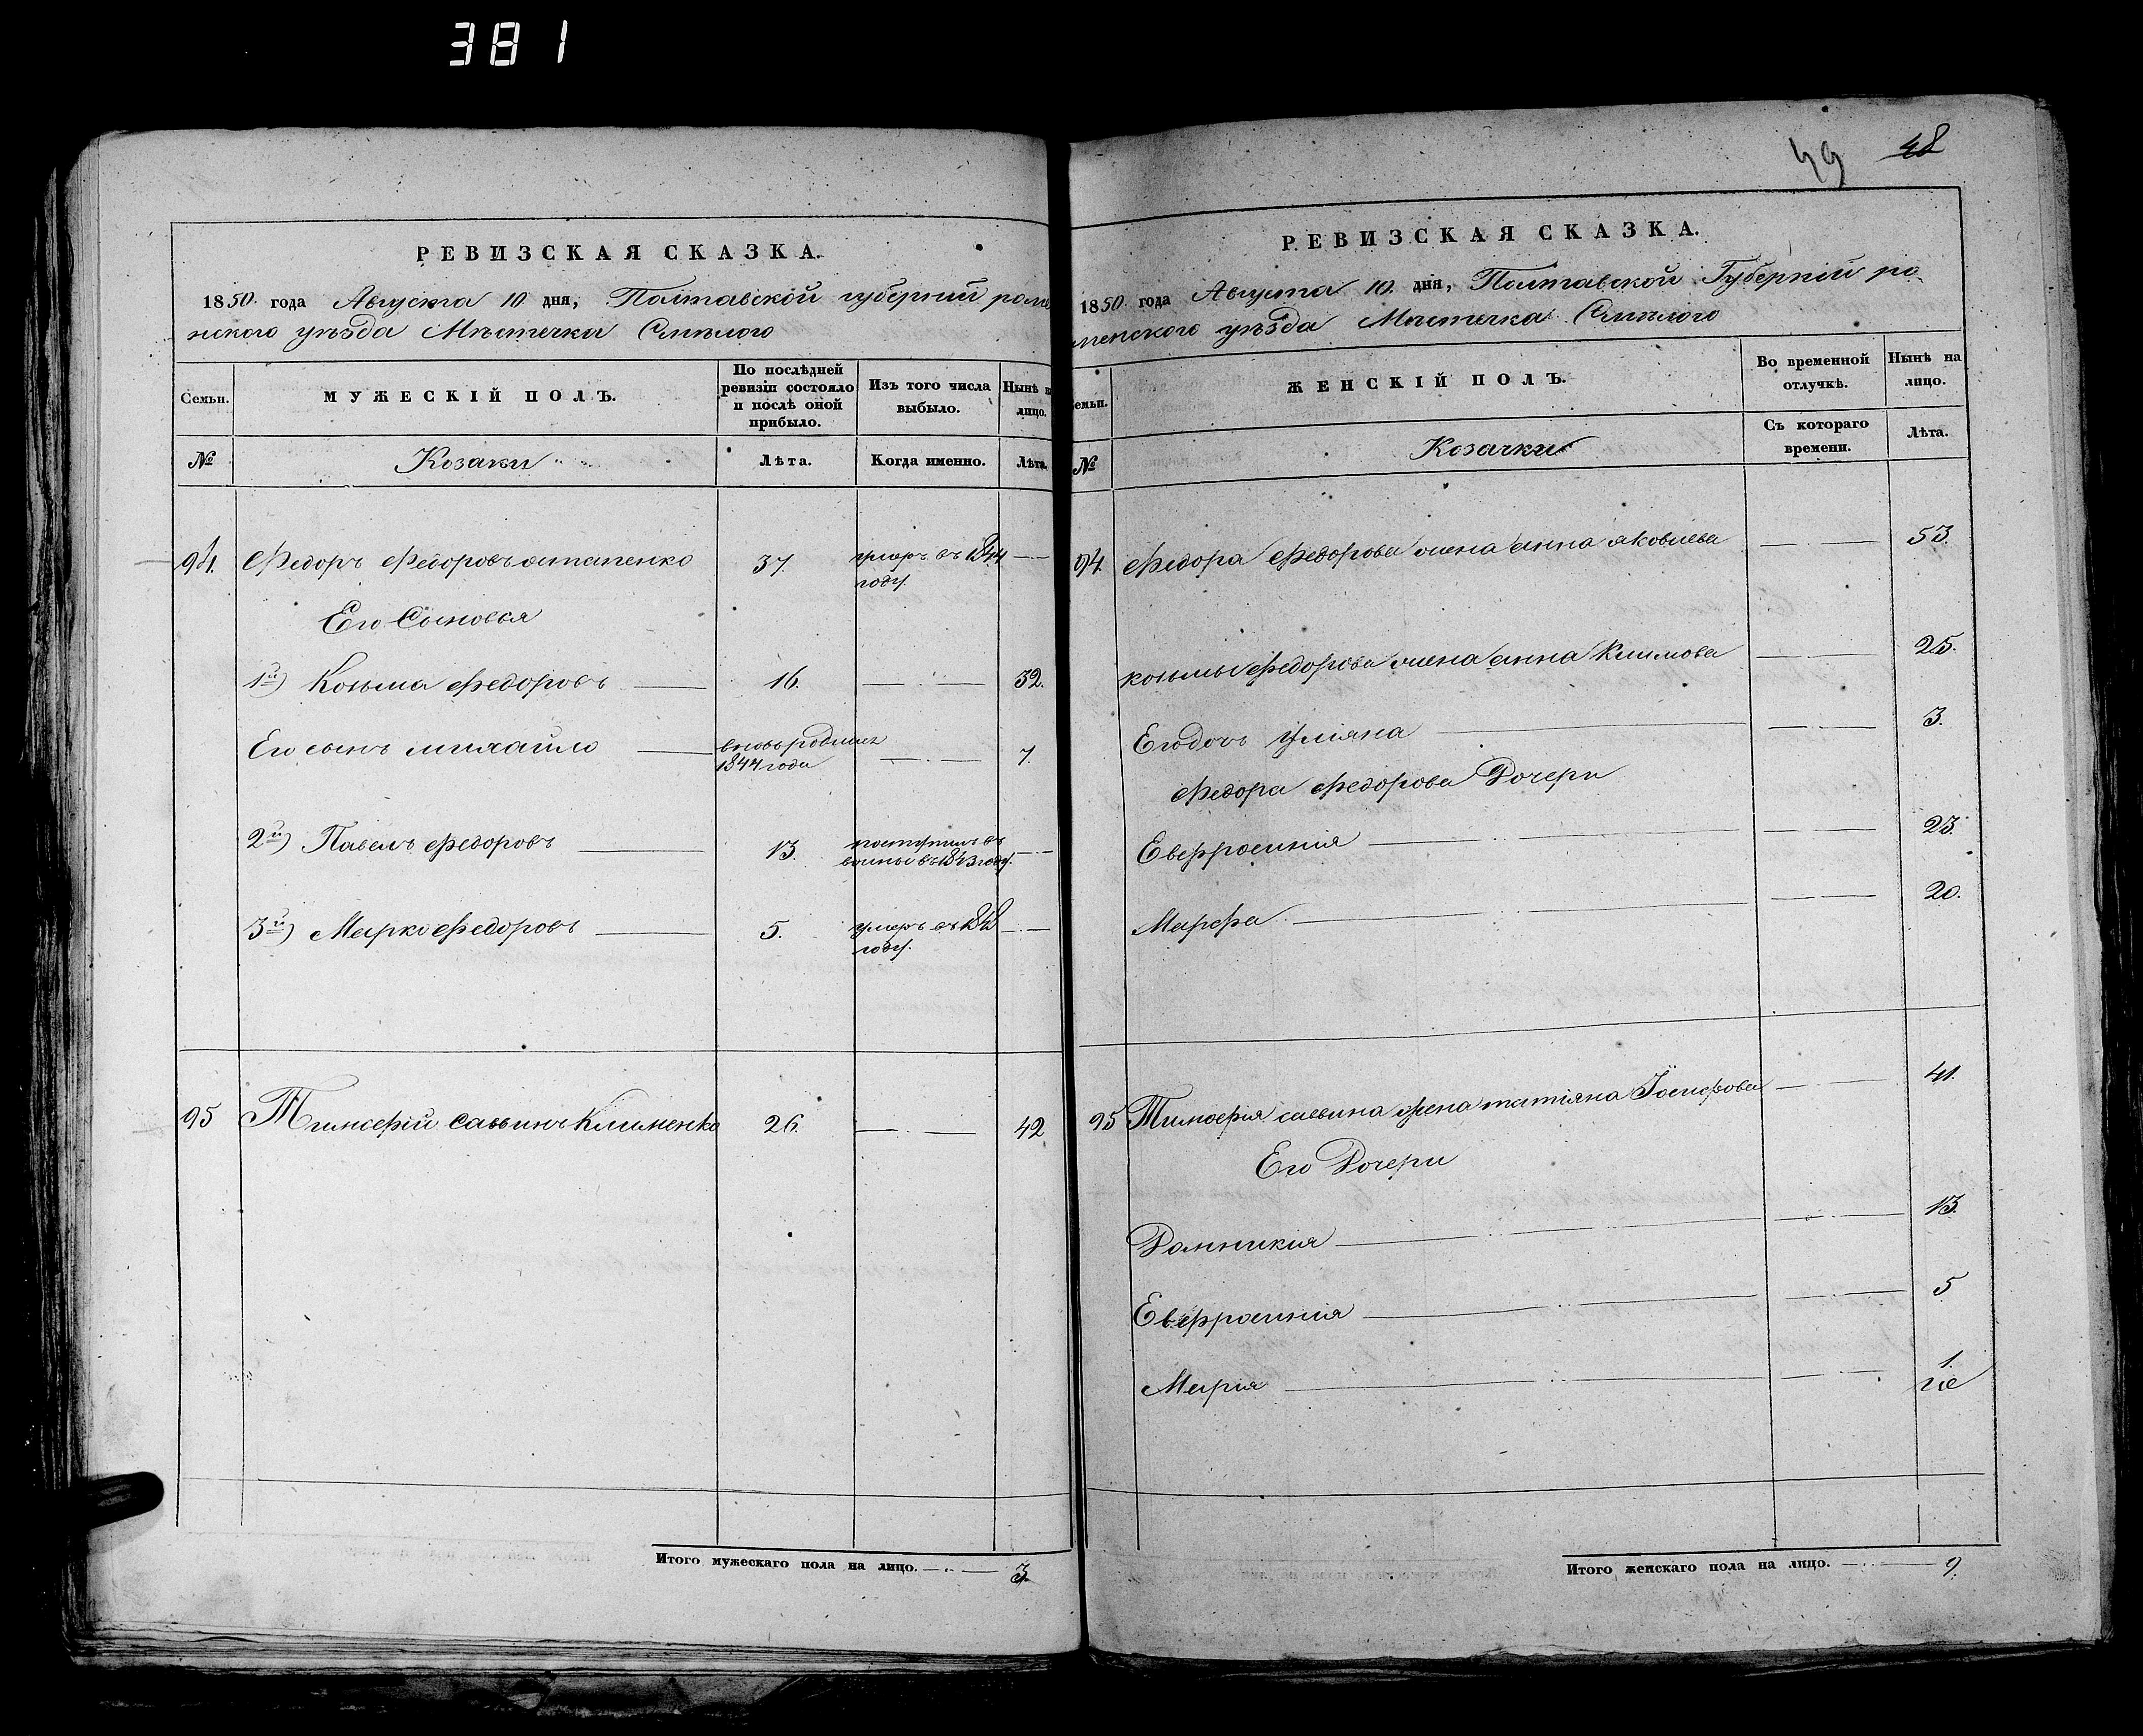 381
РЕВИЗСКАЯ СКАЗКА.
1850. года Августа 10 дня, Полтавской губерніи роме
нского уѣзда Мѣстечка Смѣлого
Семьи.
МУЖЕСКІЙ ПОЛЪ.
По послѣдней ревизіи состояло и послѣ оной прибыло.
Изъ того числа выбыло.
Нынѣ н лицо.
№
Козаки
Лѣта.
Когда именно.
Лѣта.
94. Федоръ Федоровъ остапенко 37. умеръ въ 1844 году.
Его Сыновья
1й) Козьма Федоровъ 16. 32.
Его сынъ михайло вновь родился 1844 года 7.
2й) Павелъ Федоровъ 13. поступилъ въ 1843 году.
3й) Марко Федоровъ 5. умеръ въ 1848 году.
95 Тимофей саввинъ Клименко 26. 42
Итого мужескаго пола на лицо. 3.
49 48
РЕВИЗСКАЯ СКАЗКА.
1850. года Августа 10. дня, Полтавской Губерніи ро
менского уѣзда Мѣстечка Смѣлого
емьи.
ЖЕНСКІЙ ПОЛЪ.
Во временной отлучкѣ.
Нынѣ на лицо.
№
Козачки
Съ котораго времени.
Лѣта.
94. Федора Федорова жена анна яковлева 53.
козьмы Федорова жена анна Климова 25.
Его дочь Уліяна 3.
Федора Федорова Дочери
Евфросинія 23.
Марфа 20.
95 Тимофея саввина жена татіяна Іосифова 41.
Его Дочери
Домникія 13.
Евфросинія 5
Марія 1.
Итого женскаго пола на лицо. 9.